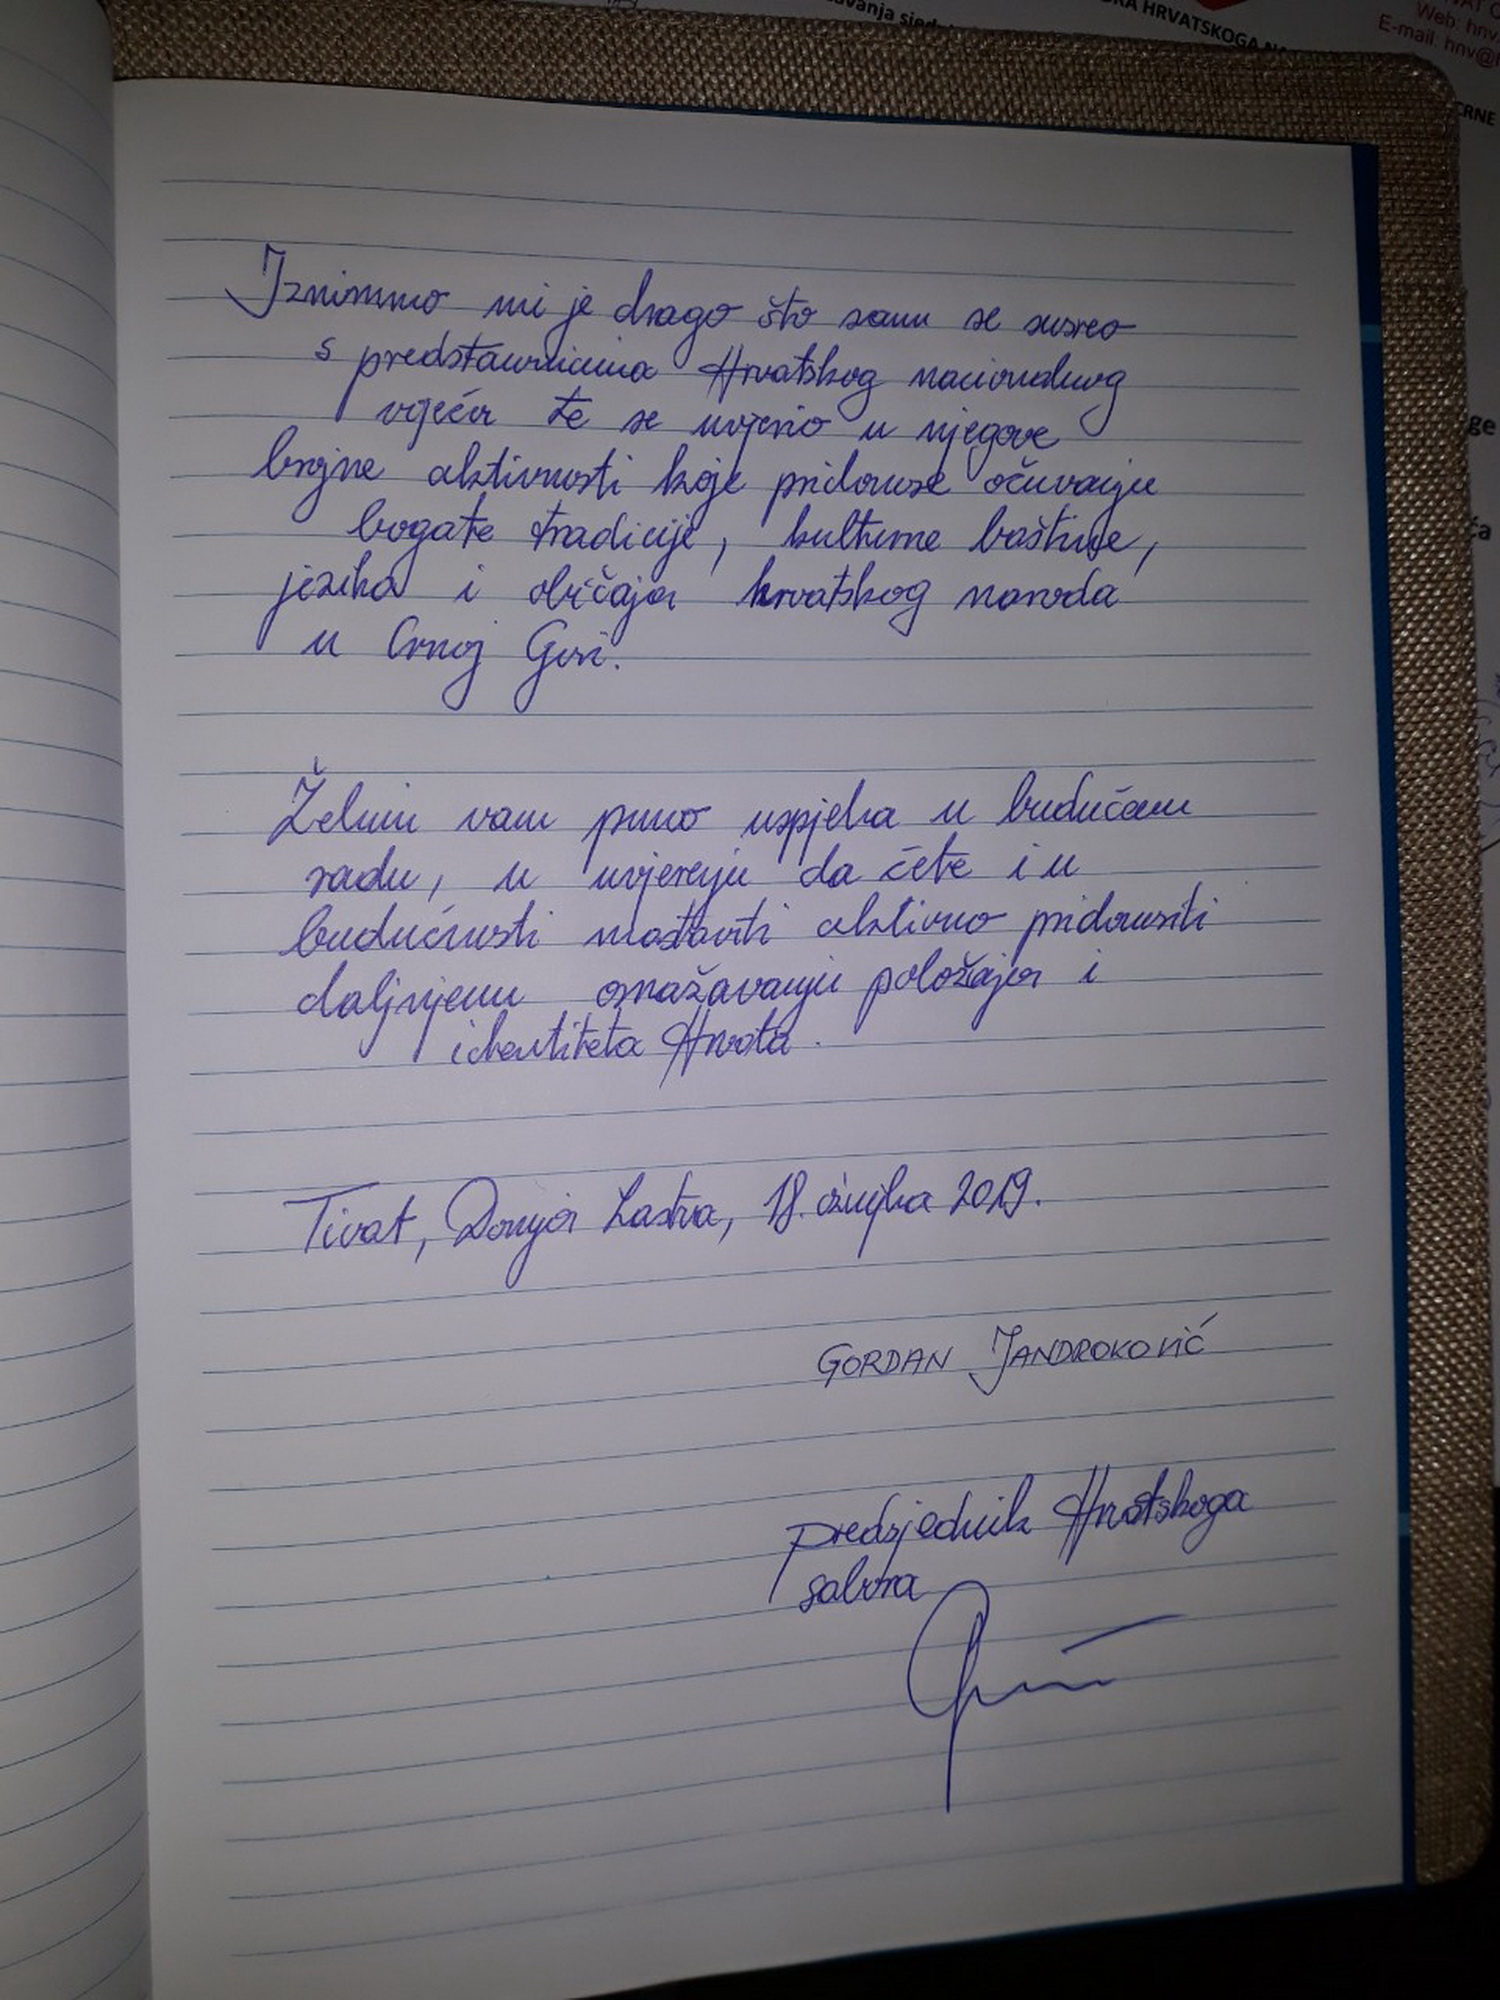 avanja
DRA HRVATSKOGA NA
Web: hnv.
E-mail: hnv@h
CRNE
ge
Iznimno mi je drago što sam se susreo
s predstavnicima Hrvatskog nacionalnog
vijeća te se uvjerio u njegove
brojne aktivnosti koje pridonose očuvanju
bogate tradicije, kulturne baštine,
jezika i običaja hrvatskog naroda
u Crnoj Gori.
Želim vam puno uspjeha u budućem
radu, u uvjerenju da ćete i u
budućnosti nastaviti aktivno pridonositi
daljnjem osnaživanju položaja i
identiteta Hrvata.
Tivat, Donja Lastva, 18. ožujka 2019.
GORDAN JANDROKOVIĆ
predsjednik Hrvatskoga
sabora